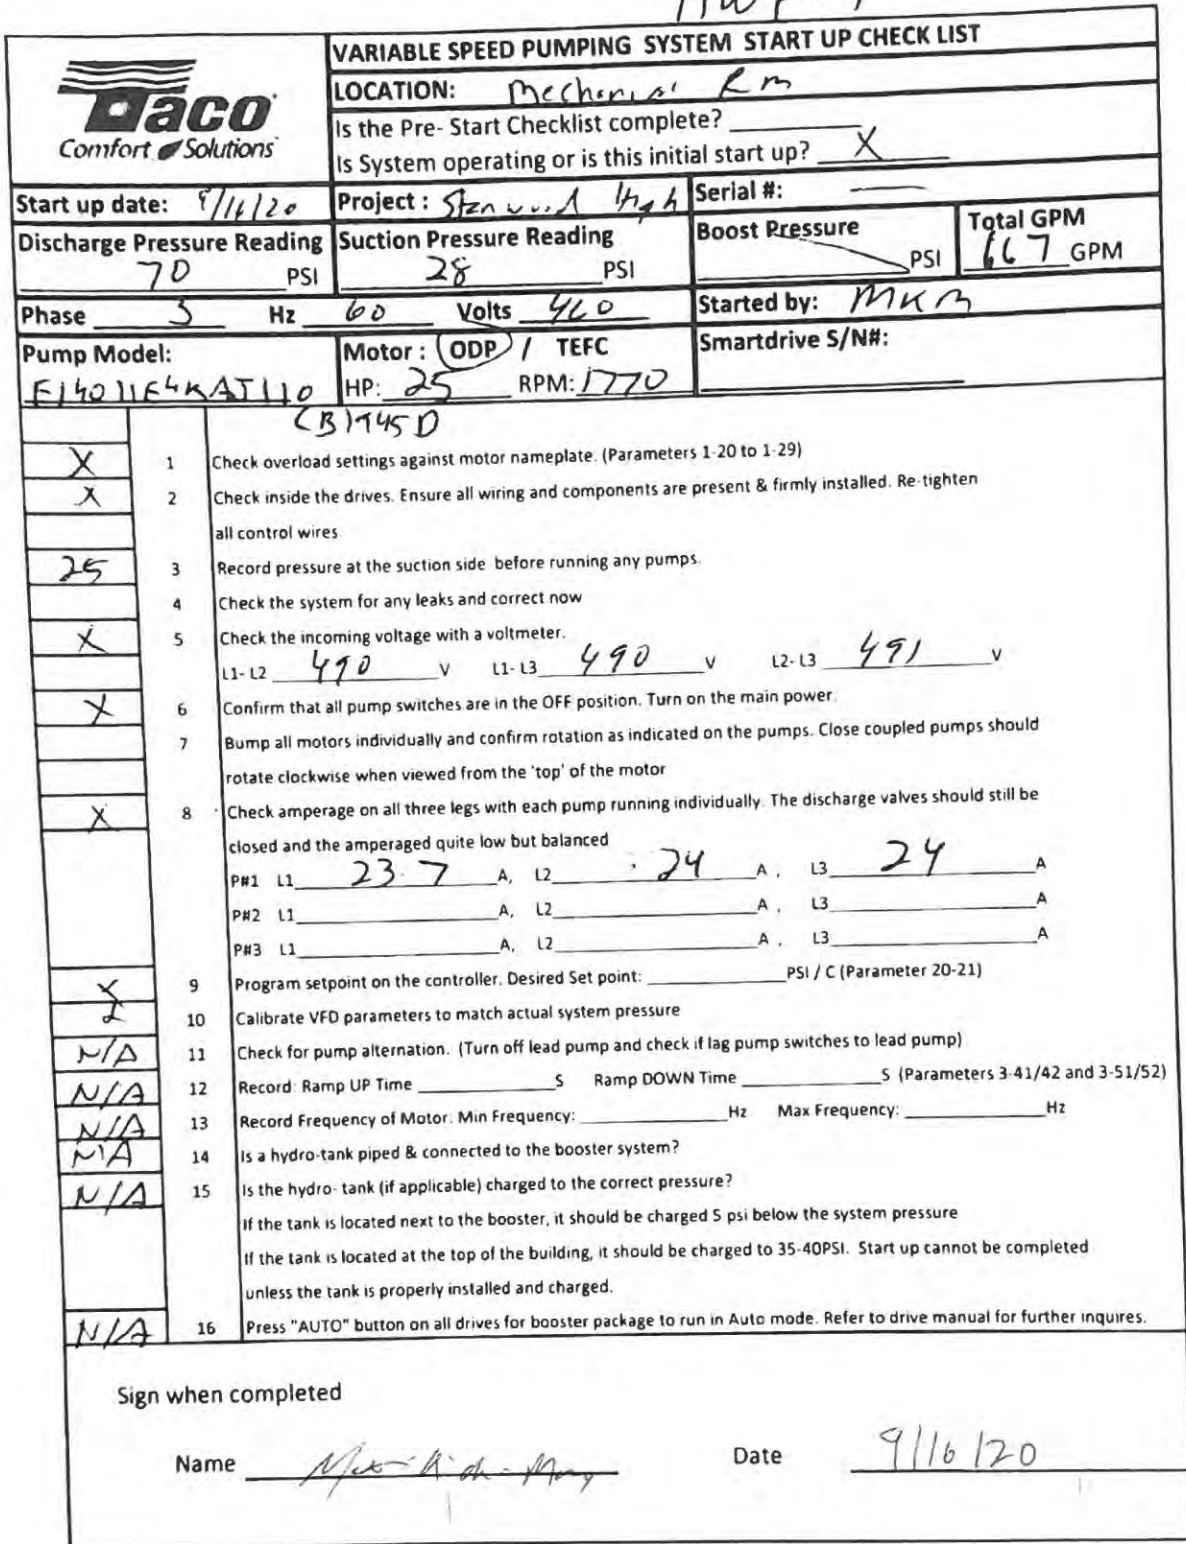 HWP
VARIABLE SPEED PUMPING SYSTEM START UP CHECK LIST
Taco
Comfort Solutions
LOCATION: Mechanical Rm
Is the Pre- Start Checklist complete?
Is System operating or is this initial start up? X
Start up date: 9/16/20 Project : Stanwood High Serial #: —
Discharge Pressure Reading 70 PSI
Suction Pressure Reading 28 PSI
Boost Pressure PSI
Total GPM 667 GPM
Phase 3 Hz 60 Volts 460 Started by: MKM
Pump Model: Motor : ODP / TEFC Smartdrive S/N#:
HP: 25 RPM: 1770
X 1 Check overload settings against motor nameplate. (Parameters 1-20 to 1-29)
X 2 Check inside the drives. Ensure all wiring and components are present & firmly installed. Re-tighten
all control wires
25 3 Record pressure at the suction side before running any pumps.
4 Check the system for any leaks and correct now
X 5 Check the incoming voltage with a voltmeter.
L1- L2 490 V L1- L3 490 V L2- L3 491 V
X 6 Confirm that all pump switches are in the OFF position. Turn on the main power.
7 Bump all motors individually and confirm rotation as indicated on the pumps. Close coupled pumps should
rotate clockwise when viewed from the 'top' of the motor
X 8 Check amperage on all three legs with each pump running individually. The discharge valves should still be
closed and the amperaged quite low but balanced
P#1 L1 23.7 A, L2 24 A , L3 24 A
P#2 L1 A, L2 A , L3 A
P#3 L1 A, L2 A , L3 A
X 9 Program setpoint on the controller. Desired Set point: PSI / C (Parameter 20-21)
10 Calibrate VFD parameters to match actual system pressure
N/A 11 Check for pump alternation. (Turn off lead pump and check if lag pump switches to lead pump)
N/A 12 Record: Ramp UP Time S Ramp DOWN Time S (Parameters 3-41/42 and 3-51/52)
N/A 13 Record Frequency of Motor: Min Frequency: Hz Max Frequency: Hz
N/A 14 Is a hydro-tank piped & connected to the booster system?
N/A 15 Is the hydro- tank (if applicable) charged to the correct pressure?
If the tank is located next to the booster, it should be charged 5 psi below the system pressure
If the tank is located at the top of the building, it should be charged to 35-40PSI. Start up cannot be completed
unless the tank is properly installed and charged.
N/A 16 Press "AUTO" button on all drives for booster package to run in Auto mode. Refer to drive manual for further inquires.
Sign when completed
Name Date 9/16/20